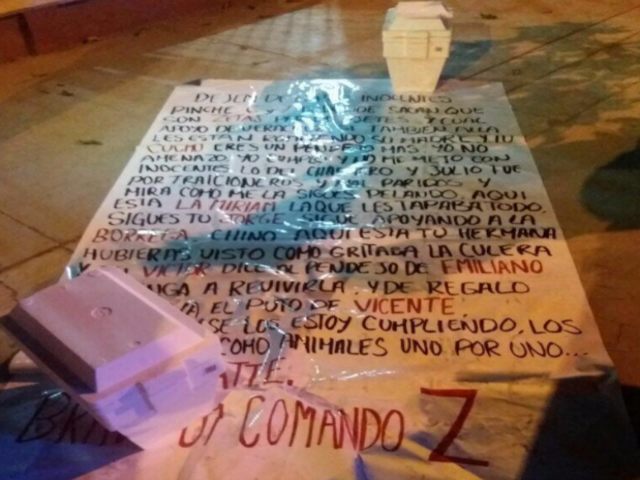 DEJEN DE INOCENTES
PINCHE DE SACAN QUE
SON Y
APOYO DE TAMBIEN ALLA
LES ESTAN SU MADRE TU
CULMO ERES UN PENDEJO MAS YO NO
AMENAZO YO CUMPLO Y NO ME METO CON
INOCENTES LO DEL Y JULIO FUE
POR TRAICIONEROS Y Y
MIRA COMO ME LA SIGUES PELANDO. AQUI
ESTA LA MIRIAM LA QUE LES TAPABA TODO.
SIGUES TU JORGE SIGUE APOYANDO A LA
BORREGA CHINO AQUI ESTA TU HERMANA
HUBIERAS VISTO COMO GRITABA LA CULERA
Y VICTOR DILE AL PENDEJO DE EMILIANO
VENGA A REVIVIRLA. Y DE REGALO
EL PUTO DE VICENTE
SE LOS ESTOY CUMPLIENDO, LOS
COMO ANIMALES UNO POR UNO...
ATTE.
COMANDO Z